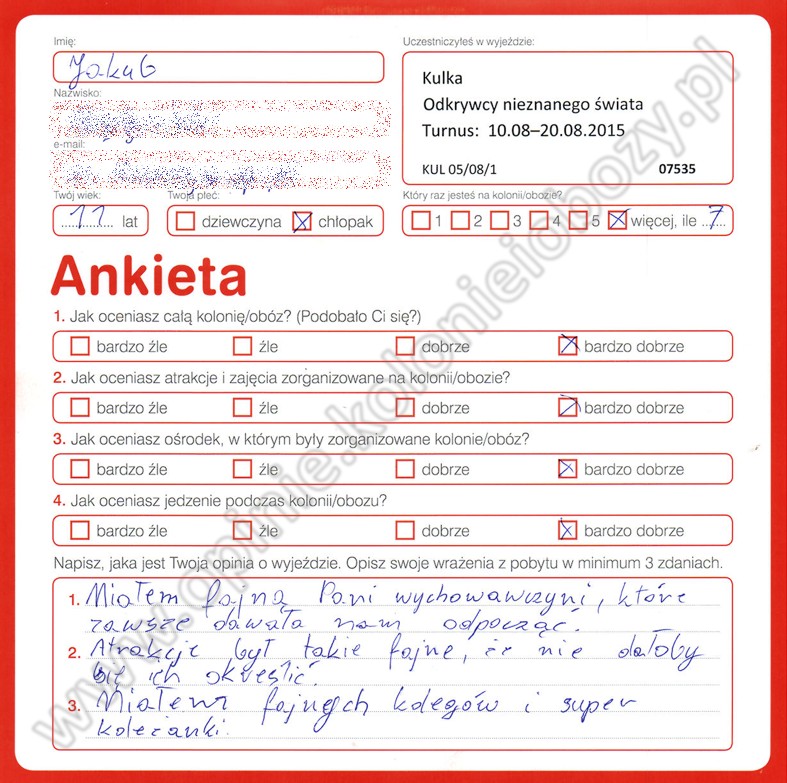 Imię:
Jakub
Uczestniczyłeś w wyjeździe:
Kulka
Odkrywcy nieznanego świata
Turnus: 10.08–20.08.2015
KUL 05/08/1 07535
Nazwisko:
e-mail:
Twój wiek:
11 lat
Twoja płeć:
dziewczyna chłopak
Który raz jesteś na kolonii/obozie?
1 2 3 4 5 więcej, ile 7
Ankieta
1. Jak oceniasz całą kolonię/obóz? (Podobało Ci się?)
bardzo źle źle dobrze bardzo dobrze
2. Jak oceniasz atrakcje i zajęcia zorganizowane na kolonii/obozie?
bardzo źle źle dobrze bardzo dobrze
3. Jak oceniasz ośrodek, w którym były zorganizowane kolonie/obóz?
bardzo źle źle dobrze bardzo dobrze
4. Jak oceniasz jedzenie podczas kolonii/obozu?
bardzo źle źle dobrze bardzo dobrze
Napisz, jaka jest Twoja opinia o wyjeździe. Opisz swoje wrażenia z pobytu w minimum 3 zdaniach.
1. Miałem fajną Pani wychowawczyni, które
zawsze dawała nam odpocząć.
2. Atrakcje był takie fajne, że nie dałoby
się ich określić.
3. Miałem fajnych kolegów i super
koleżanki.
www.opinie.kolonieiobozy.pl